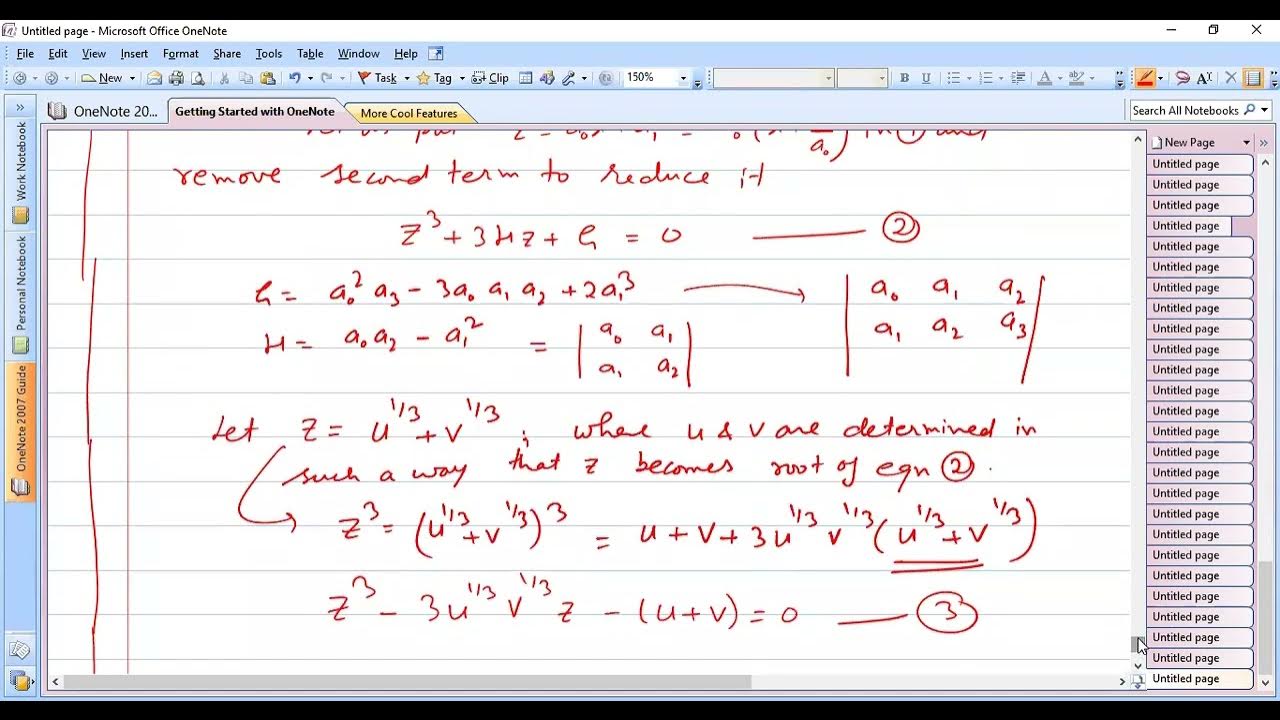 Untitled page - Microsoft Office OneNote
File Edit View Insert Format Share Tools Table Window Help
New Task Tag Clip 150% B U A
OneNote 20... Getting Started with OneNote More Cool Features Search All Notebooks
Work Notebook
Personal Notebook
OneNote 2007 Guide
New Page
Untitled page
Untitled page
Untitled page
Untitled page
Untitled page
Untitled page
Untitled page
Untitled page
Untitled page
Untitled page
Untitled page
Untitled page
Untitled page
Untitled page
Untitled page
Untitled page
Untitled page
Untitled page
Untitled page
Untitled page
Untitled page
Untitled page
Untitled page
Untitled page
Untitled page
Untitled page
remove second term to reduce it
z³ + 3Hz + G = 0 ——— ②
G = a₀² a₃ - 3a₀ a₁ a₂ + 2a₁³ → | a₀ a₁ a₂ |
| a₁ a₂ a₃ |
H = a₀a₂ - a₁² = | a₀ a₁ |
| a₁ a₂ |
Let z = u^1/3 + v^1/3 ; where u & v are determined in
such a way that z becomes root of eqn ② .
→ z³ = (u^1/3 + v^1/3)³ = u + v + 3u^1/3 v^1/3 (u^1/3 + v^1/3)
z³ - 3u^1/3 v^1/3 z - (u+v) = 0 ——— ③